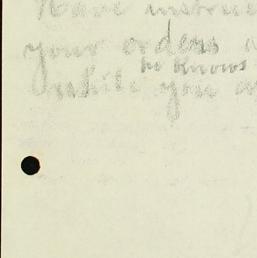 Have instruc
your orders
he knows
while you